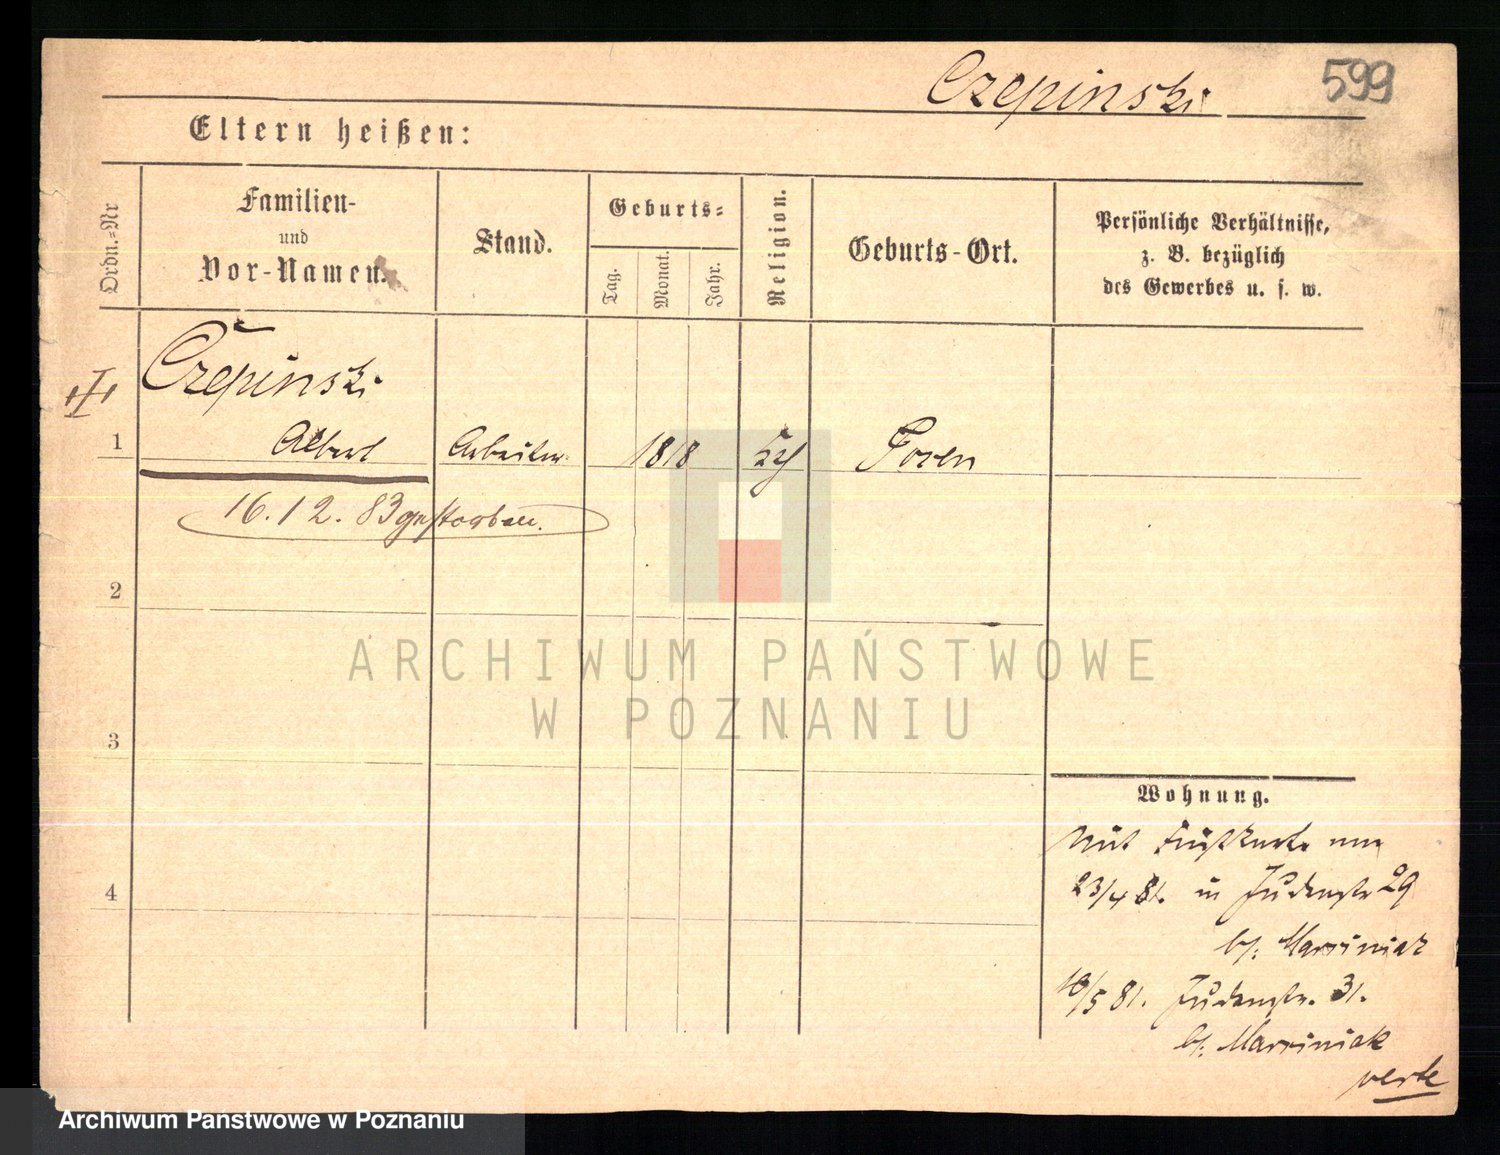 Czepinski
599
Eltern heißen:
Ordn.-Nr
Familien-
und
Vor-Namen.
Stand.
Geburts-
Tag.
Monat.
Jahr.
Religion.
Geburts-Ort.
Persönliche Verhältnisse,
z. B. bezüglich
des Gewerbes u. s. w.
Czepinski
1
Albert
Arbeiter
1818
Posen
16. 12. 83 gestorben.
2
ARCHIWUM PAŃSTWOWE
W POZNANIU
3
Wohnung.
23/4 81. in Judenstr 29
b/: Marciniak
4
10/5 81. Judenstr. 31.
b/: Marciniak
verte
Archiwum Państwowe w Poznaniu